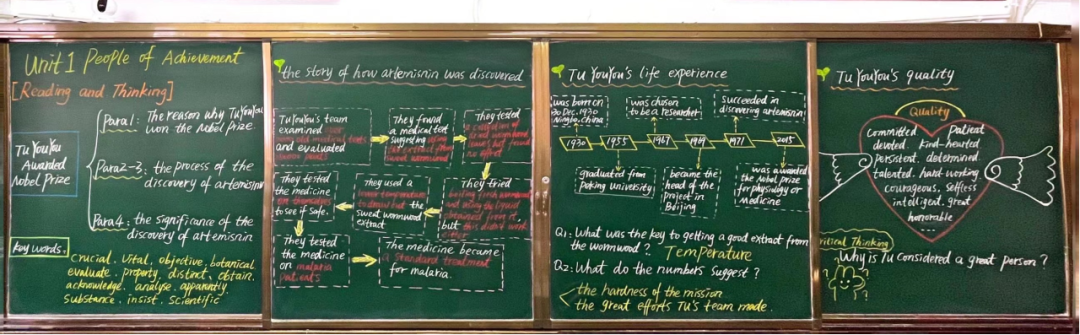 Unit 1 People of Achievement
[Reading and Thinking]
Tu YouYou
Awarded
Nobel Prize
Para1: The reason why TuYouYou
won the Nobel Prize.
Para2-3: the process of the
discovery of artemisnin
Para4: the significance of the
discovery of artemisnin
key words.
crucial. vital, objective, botanical
evaluate. property, distinct, obtain.
acknowledge, analyse, apparently,
substance, insist, scientific
the story of how artemisnin was discovered
TuYouYou's team
examined over
old medical texts
and evaluated
They found
a medical text
suggesting using
the extract from
sweet wormwood
They tested
They tried
boiling fresh wormwood
and using the liquid
obtained from it,
but this didn't work
either
They used a
lower temperature
to draw out the
sweat wormwood
extract
They tested
the medicine
on themselves
to see if safe.
They tested
the medicine
on malaria
patients
The medicine became
a standard treatment
for malaria.
Tu YouYou's life experience
was born on
30 Dec, 1930
Ningbo, China
was chosen
to be a researcher
succeeded in
discovering artemisnin
1930
1955
1967
1969
1971
2015
graduated from
Peking University
became the
head of the
project in
Beijing
was awarded
the Nobel Prize
for physiology or
Medicine
Q1: What was the key to getting a good extract from
the wormwood? Temperature
Q2: What do the numbers suggest?
the hardness of the mission
the great efforts Tu's team made.
Tu YouYou's quality
Quality
Committed Patient
devoted. kind-hearted
persistent. determined
talented. hard-working
courageous, selfless
intelligent. great
honorable
...
Critical Thinking
Why is Tu considered a great person?